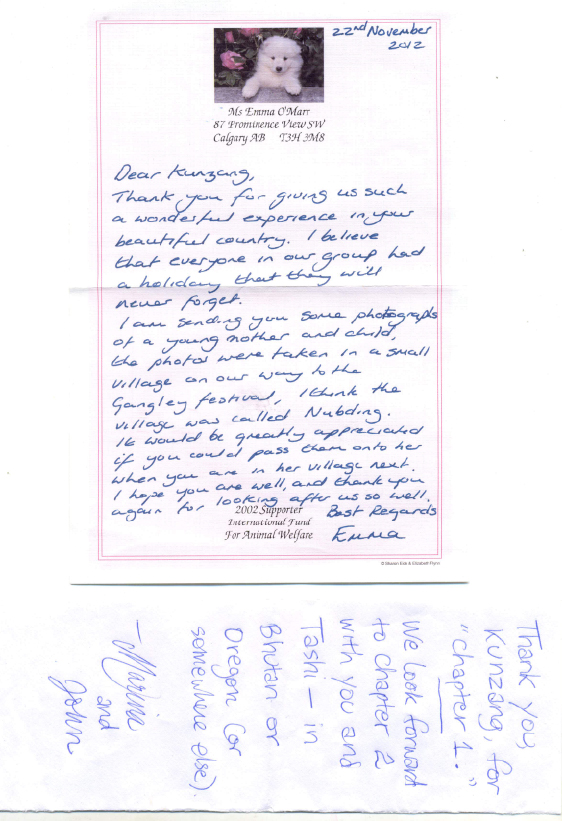 22nd November
2012
Ms Emma O'Marr
87 Prominence View SW
Calgary AB T3H 3M8
Dear Kunzang,
Thank you for giving us such
a wonderful experience in your
beautiful country. I believe
that everyone in our group had
a holiday that they will
never forget.
I am sending you some photographs
of a young mother and child,
the photos were taken in a small
village on our way to the
Gangley festival, I think the
village was called Nubding.
It would be greatly appreciated
if you could pass them onto her
when you are in her village next.
I hope you are well, and thank you
again for looking after us so well.
2002 Supporter
International Fund
For Animal Welfare
Best Regards
Emma
© Sharon Eide & Elizabeth Flynn
Thank you,
Kunzang, for
"chapter 1."
We look forward
to chapter 2
with you and
Tashi – in
Bhutan or
Oregon (or
somewhere else).
– Marina
and
John